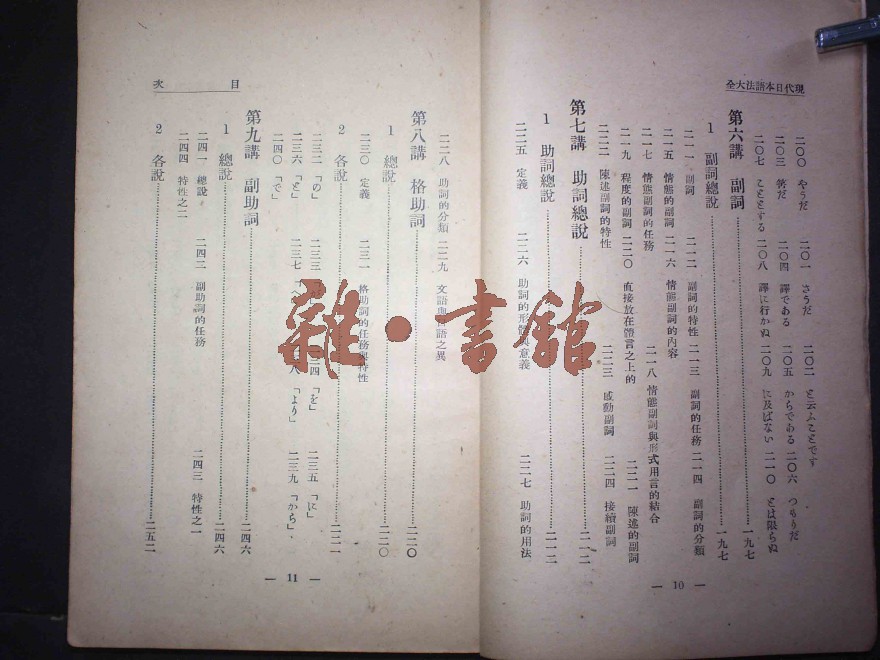 現代日本語法大全
二〇〇 やうだ 二〇一 さうだ 二〇二 と云ふことです
二〇三 筈だ 二〇四 譯である 二〇五 からである 二〇六 つもりだ
二〇七 こととする 二〇八 譯に行かぬ 二〇九 に及ばない 二一〇 とは限らぬ
第六講 副詞 一九七
1 副詞總說 一九七
二一一 副詞 二一二 副詞的特性 二一三 副詞的任務 二一四 副詞的分類
二一五 情態的副詞 二一六 情態副詞的內容
二一七 情態副詞的任務 二一八 情態副詞與形式用言的結合
二一九 程度的副詞 二二〇 直接放在體言之上的 二二一 陳述的副詞
二二二 陳述副詞的特性 二二三 感動副詞 二二四 接續副詞
第七講 助詞總說 二一二
1 助詞總說 二一二
二二五 定義 二二六 助詞的形態與意義 二二七 助詞的用法
— 10 —
目 次
二二八 助詞的分類 二二九 文語與口語之異
第八講 格助詞 二二〇
1 總說 二二〇
二三〇 定義 二三一 格助詞的任務與特性
2 各說 二二一
二三二 「の」 二三三 二三四 「を」 二三五 「に」
二三六 「と」 二三七 「へ」 二三八 「より」 二三九 「から」
二四〇 「で」
第九講 副助詞 二四六
1 總說 二四六
二四一 總說 二四二 副助詞的任務 二四三 特性之一
二四四 特性之二
2 各說 二五二
— 11 —
雜·書館